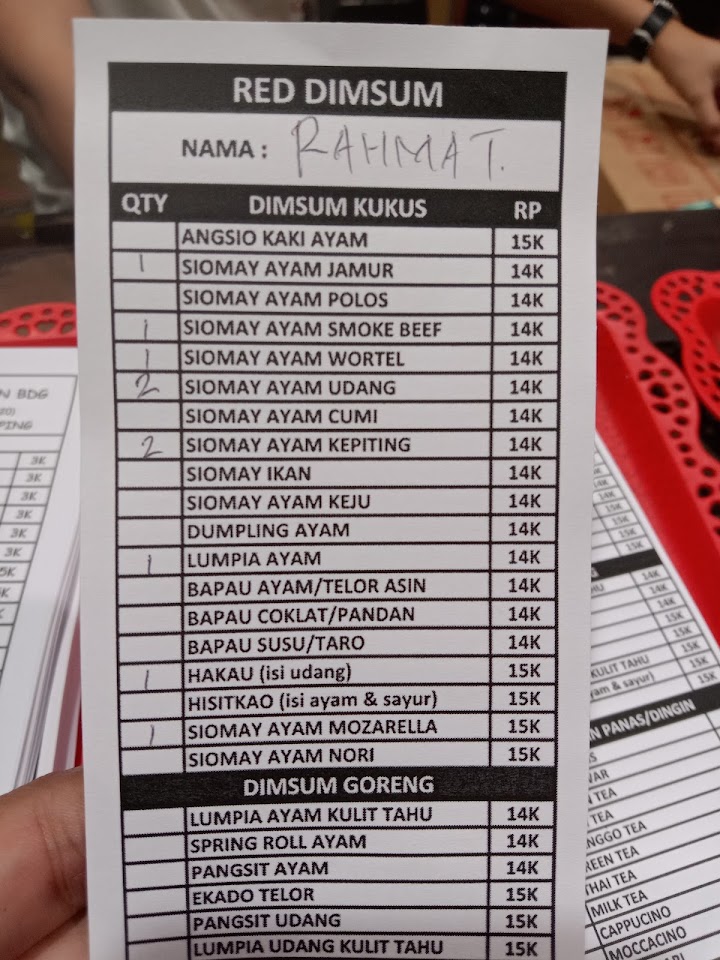 RED DIMSUM
NAMA : RAHMAT.
QTY DIMSUM KUKUS RP
ANGSIO KAKI AYAM 15K
1 SIOMAY AYAM JAMUR 14K
SIOMAY AYAM POLOS 14K
1 SIOMAY AYAM SMOKE BEEF 14K
1 SIOMAY AYAM WORTEL 14K
2 SIOMAY AYAM UDANG 14K
SIOMAY AYAM CUMI 14K
2 SIOMAY AYAM KEPITING 14K
SIOMAY IKAN 14K
SIOMAY AYAM KEJU 14K
DUMPLING AYAM 14K
1 LUMPIA AYAM 14K
BAPAU AYAM/TELOR ASIN 14K
BAPAU COKLAT/PANDAN 14K
BAPAU SUSU/TARO 14K
1 HAKAU (isi udang) 15K
HISITKAO (isi ayam & sayur) 15K
1 SIOMAY AYAM MOZARELLA 15K
SIOMAY AYAM NORI 15K
DIMSUM GORENG
LUMPIA AYAM KULIT TAHU 14K
SPRING ROLL AYAM 14K
PANGSIT AYAM 14K
EKADO TELOR 15K
PANGSIT UDANG 15K
LUMPIA UDANG KULIT TAHU 15K
N BDG
PING
3K
3K
3K
3K
3K
14K
15K
15K
14K
14K
14K
15K
KULIT TAHU 15K
yam & sayur) 15K
N PANAS/DINGIN
TEA
TEA
NGGO TEA
REEN TEA
THAI TEA
MILK TEA
CAPPUCINO
MOCCACINO